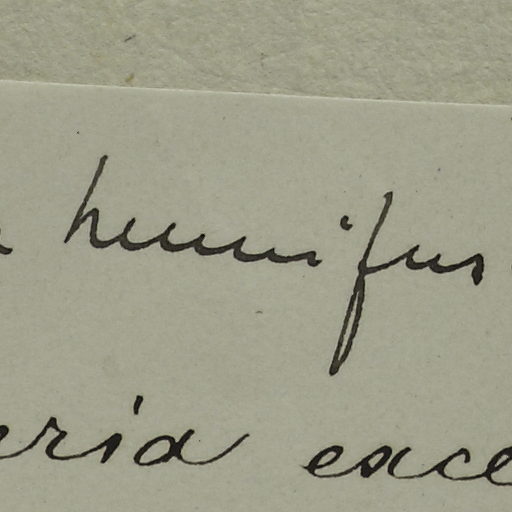 humifus
eria exce